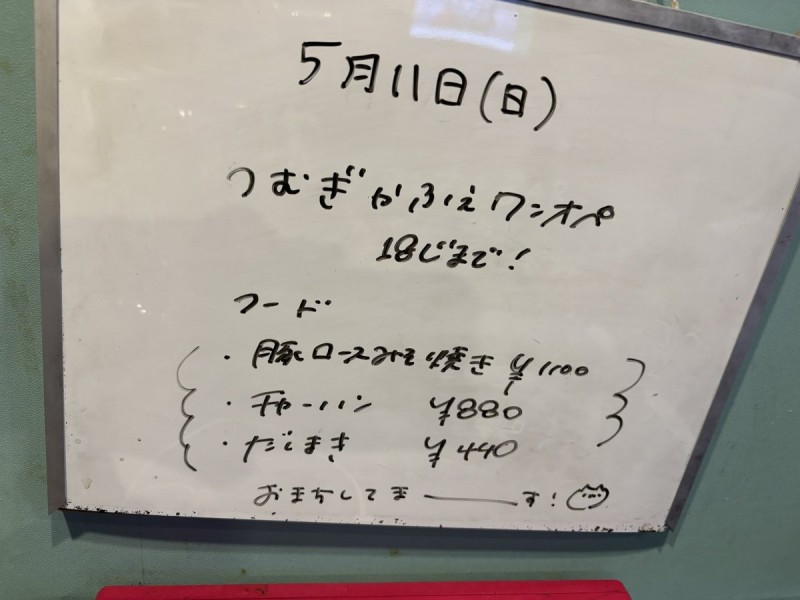 5月11日(日)
つむぎかふぇワンオペ
18じまで!
フード
・豚ロースみそ焼き ¥1100
・チャーハン ¥880
・だしまき ¥440
おまちしてま――す!